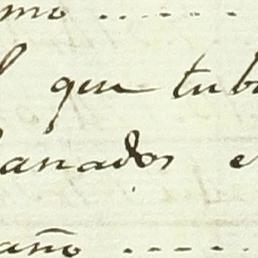 mo ......
l que tubo
lanados e
año .....